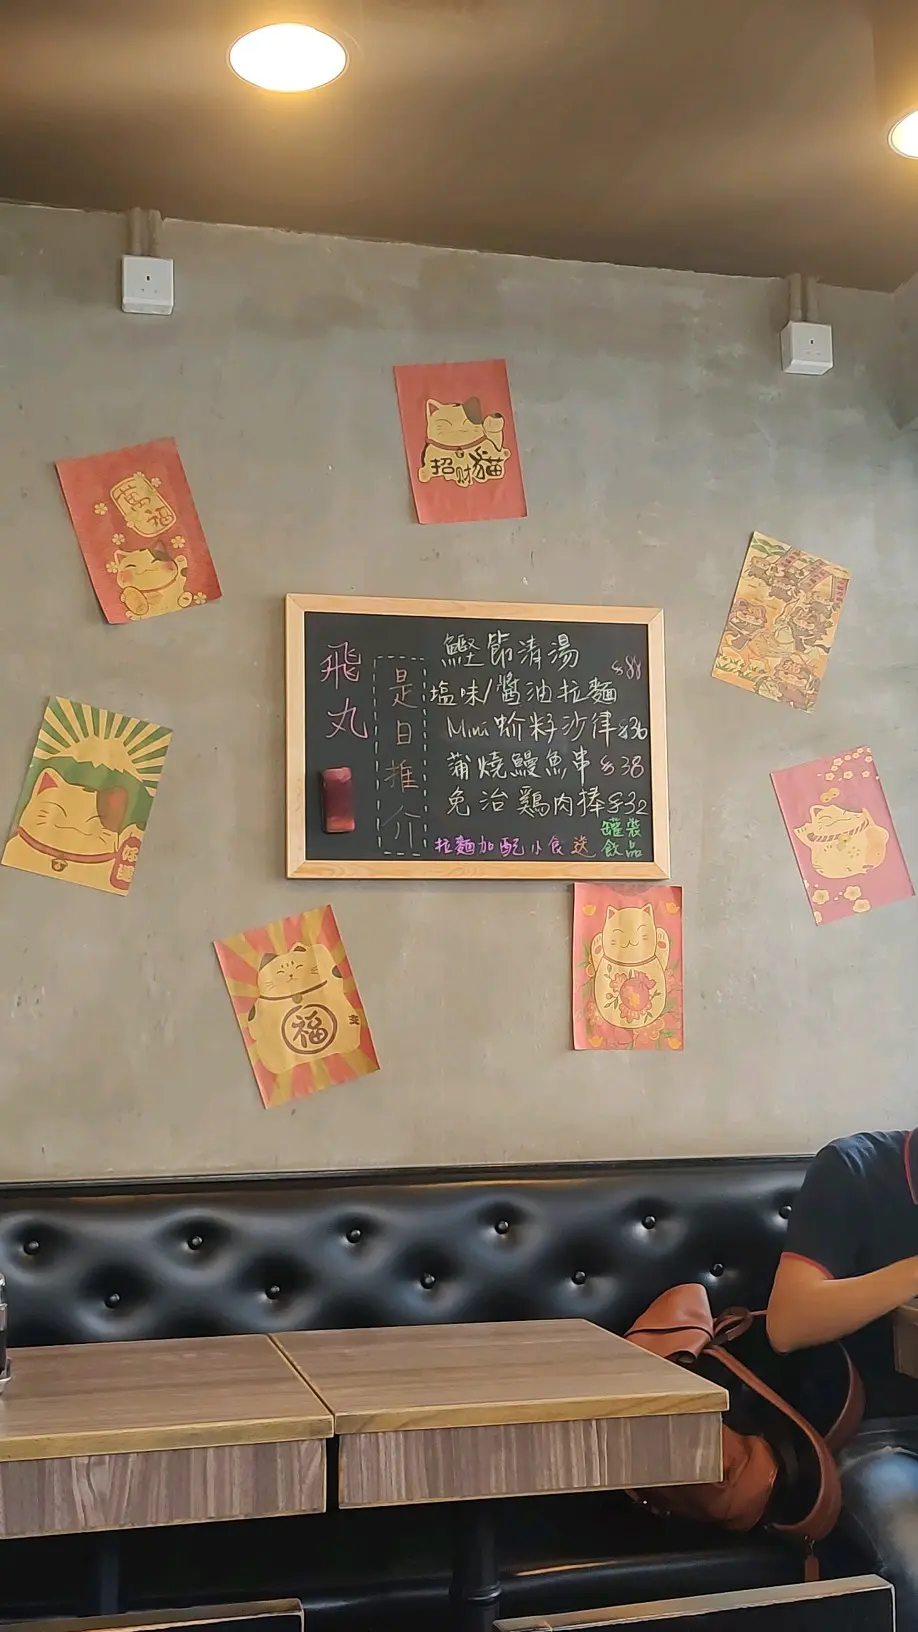 招财貓
萬福
飛丸
是日推介
鰹節清湯
塩味/醬油拉麵 $88
Mini 蚧籽沙律 $36
蒲燒鰻魚串 $38
免治鶏肉捧 $32
拉麵加配小食送罐裝飲品
福